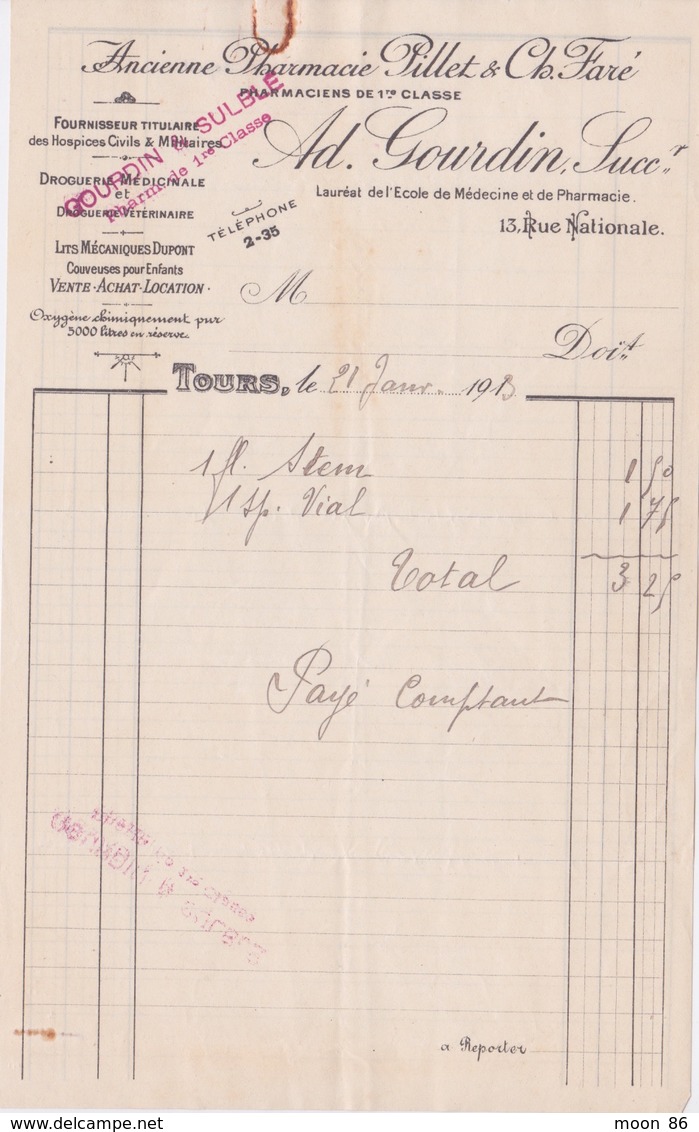 Ancienne Pharmacie Pillet & Ch. Faré
PHARMACIENS DE 1re CLASSE
Ad. Gourdin, Succr
Lauréat de l'Ecole de Médecine et de Pharmacie.
13, Rue Nationale.
GOURDIN & SULBLÉ
Pharm. de 1re Classe
FOURNISSEUR TITULAIRE
des Hospices Civils & Militaires
DROGUERIE MÉDICINALE
et
DROGUERIE VÉTÉRINAIRE
LITS MÉCANIQUES DUPONT
Couveuses pour Enfants
VENTE-ACHAT-LOCATION.
Oxygène chimiquement pur
5000 litres en réserve.
TÉLÉPHONE
2-35
M
Doit
TOURS, le 21 Janv. 1913
1 fl. Stem 1 50
1 sp. Vial 1 75
Total 3 25
Payé Comptant
a Reporter
moon 86